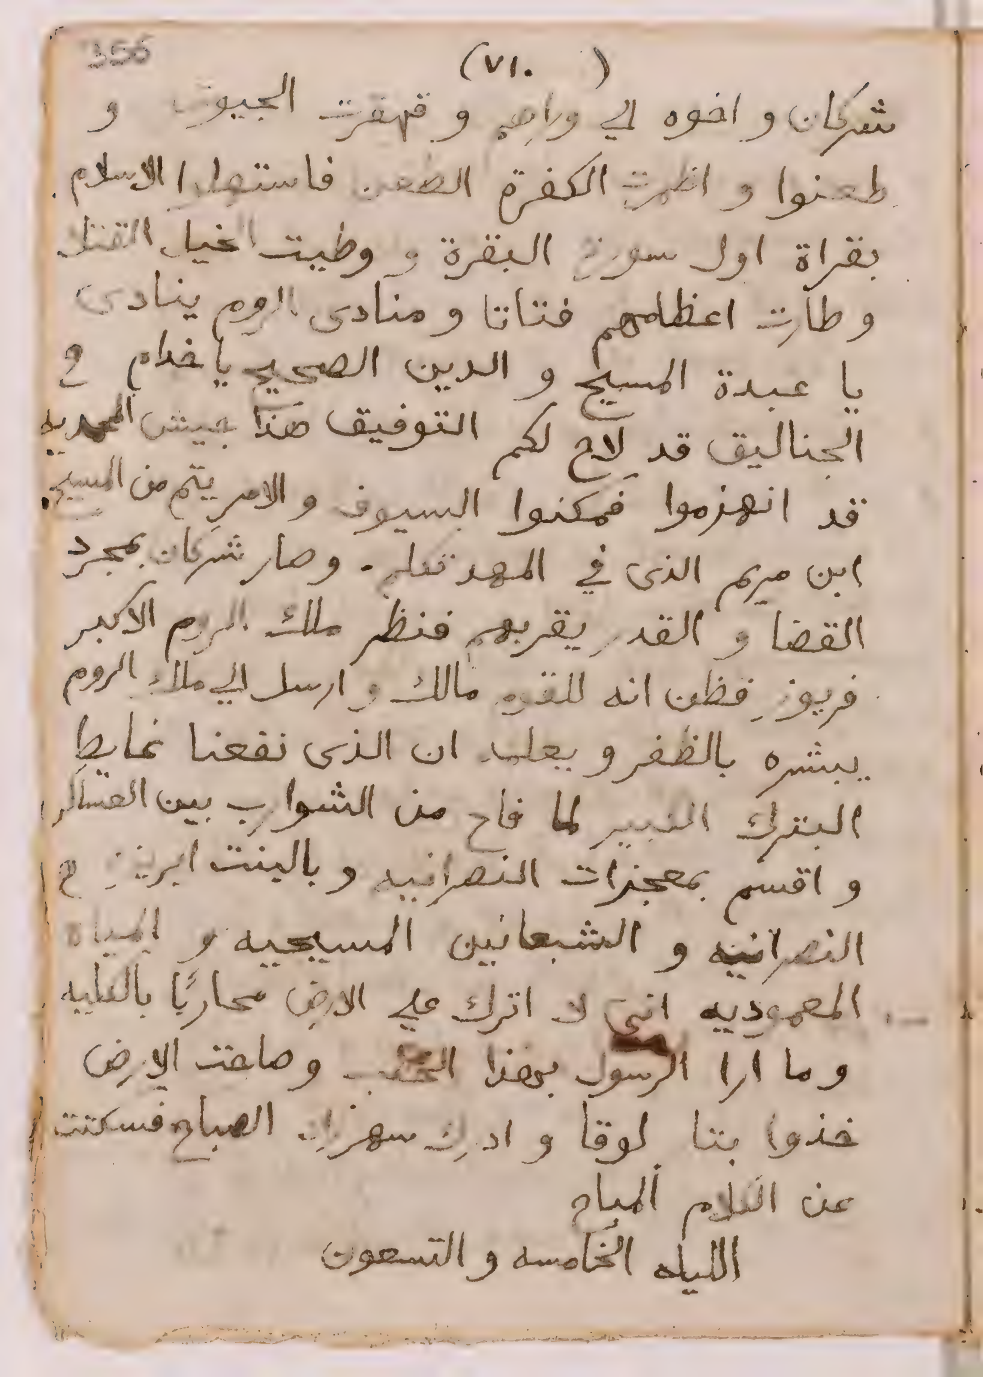 356
(٧١٠ )
شركان و اخوه الي وراهم و قهقرت الجيوش و
طعنوا و اظهرت الكفرة الطعن فاستهلوا الاسلام
بقراة اول سورة البقرة و وطيت الخيل القتلا
و طارت اعظامهم فتاتا و منادى الروم ينادى
يا عبدة المسيح و الدين الصحيح يا خدام
الجناليق قد لاح لكم التوفيق هذا جيش المحمديه
قد انهزموا فمكنوا السيوف و الامر يتم من المسيح
ابن مريم الذى في المهد تكلم . وصار شركان بمجرد
القضا و القدر يقربهم فنظر ملك الروم الاكبر
فريوز فظن انه للقوم مالك و ارسل الي ملك الروم
يبشره بالظفر و يعلمه ان الذى نفعنا غايط
البترك الكبير لما فاح من الشوارب بين العساكر
و اقسم بمعجزات النصرانيه و بالبنت ابريز
النصرانيه و الشبعانين المسيحيه و المياه
المعموديه انى لا اترك علي الارض محاربًا بالكليه
و ما ارا الرسول بهذا و صاحت الارض
خذوا بتا لوقا و ادرك سهرزاد الصباح فسكتت
عن الكلام المباح
الليله الخامسه و التسعون